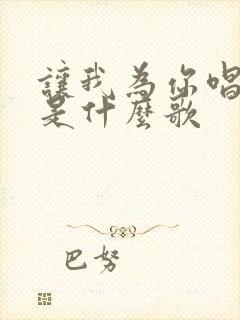 讓我為你唱
是什麼歌
巴努